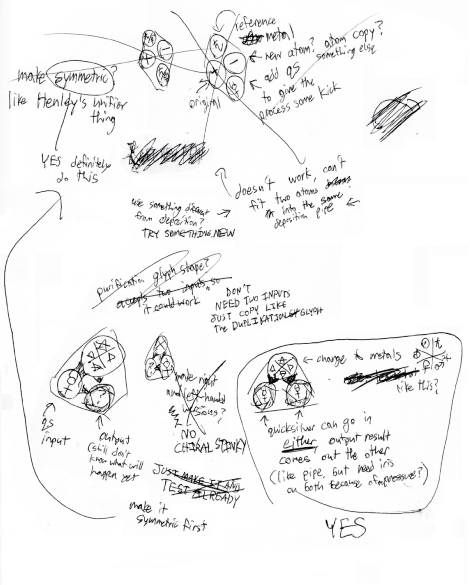 reference
metal
← new atom? atom copy?
something else
← add QS
to give the
process some kick
original
make symmetric?
like Henley's unifier
thing
YES definitely
do this
doesn't work, can't
fit two atoms
into the same
deposition pipe ←
use something different →
from deposition?
TRY SOMETHING NEW
purification glyph shape?
accepts two inputs, so
it could work
DON'T
NEED TWO INPUTS
JUST COPY LIKE
THE DUPLICATION GLYPH
make right
and left-handed
versions?
NO
CHIRAL STINKY
QS
input
output
(still don't
know what will
happen yet
JUST MAKE IT AND
TEST ALREADY
make it
symmetric first
← change to metals
like this?
quicksilver can go in
either, output result
comes out the other
(like pipe, but need iris
on both because of pressure?)
YES